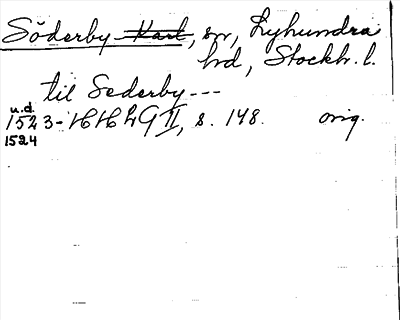 Söderby Karl, sn, Lyhundra
hd, Stockh. l.
til Sederby ---
u.d.
1523- HH LG II, s. 148. orig.
1524